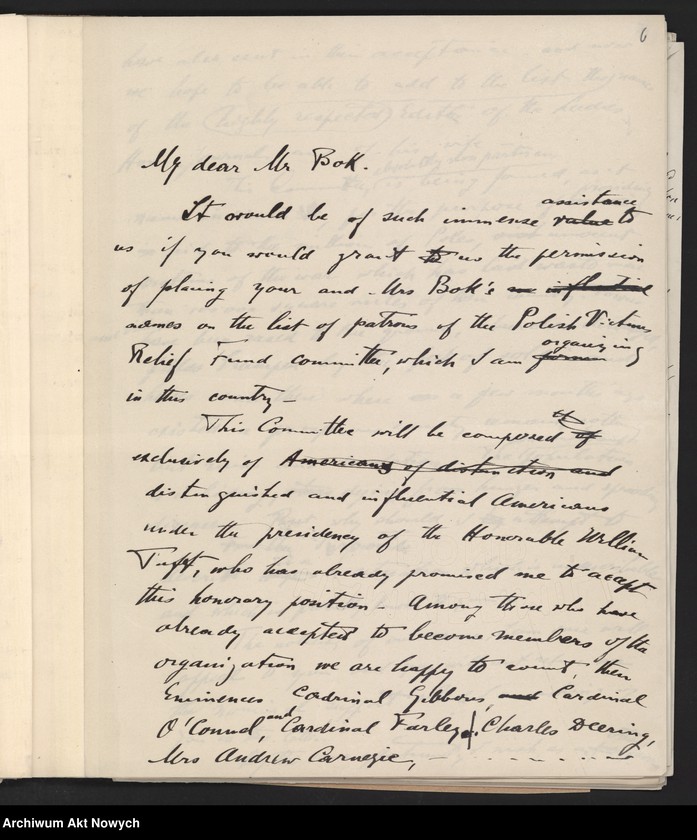 6
My dear Mr Bok.
assistance
It would be of such immense value to
us if you would grant to us the permission
of placing your and Mrs Bok's influential
names on the list of patrons of the Polish Victims
organizing
Relief Fund committee, which I am
in this country –
This Committee will be composed of
exclusively of Americans of distinction and
distinguished and influential Americans
under the presidency of the Honorable William
Taft, who has already promised me to accept
this honorary position – Among those who have
already accepted to become members of the
organization we are happy to count, their
Eminences Cadrinal Gibbons, and Cardinal
O'Connel, and Cardinal Farley, Charles Deering,
Mrs Andrew Carnegie, –
Archiwum Akt Nowych